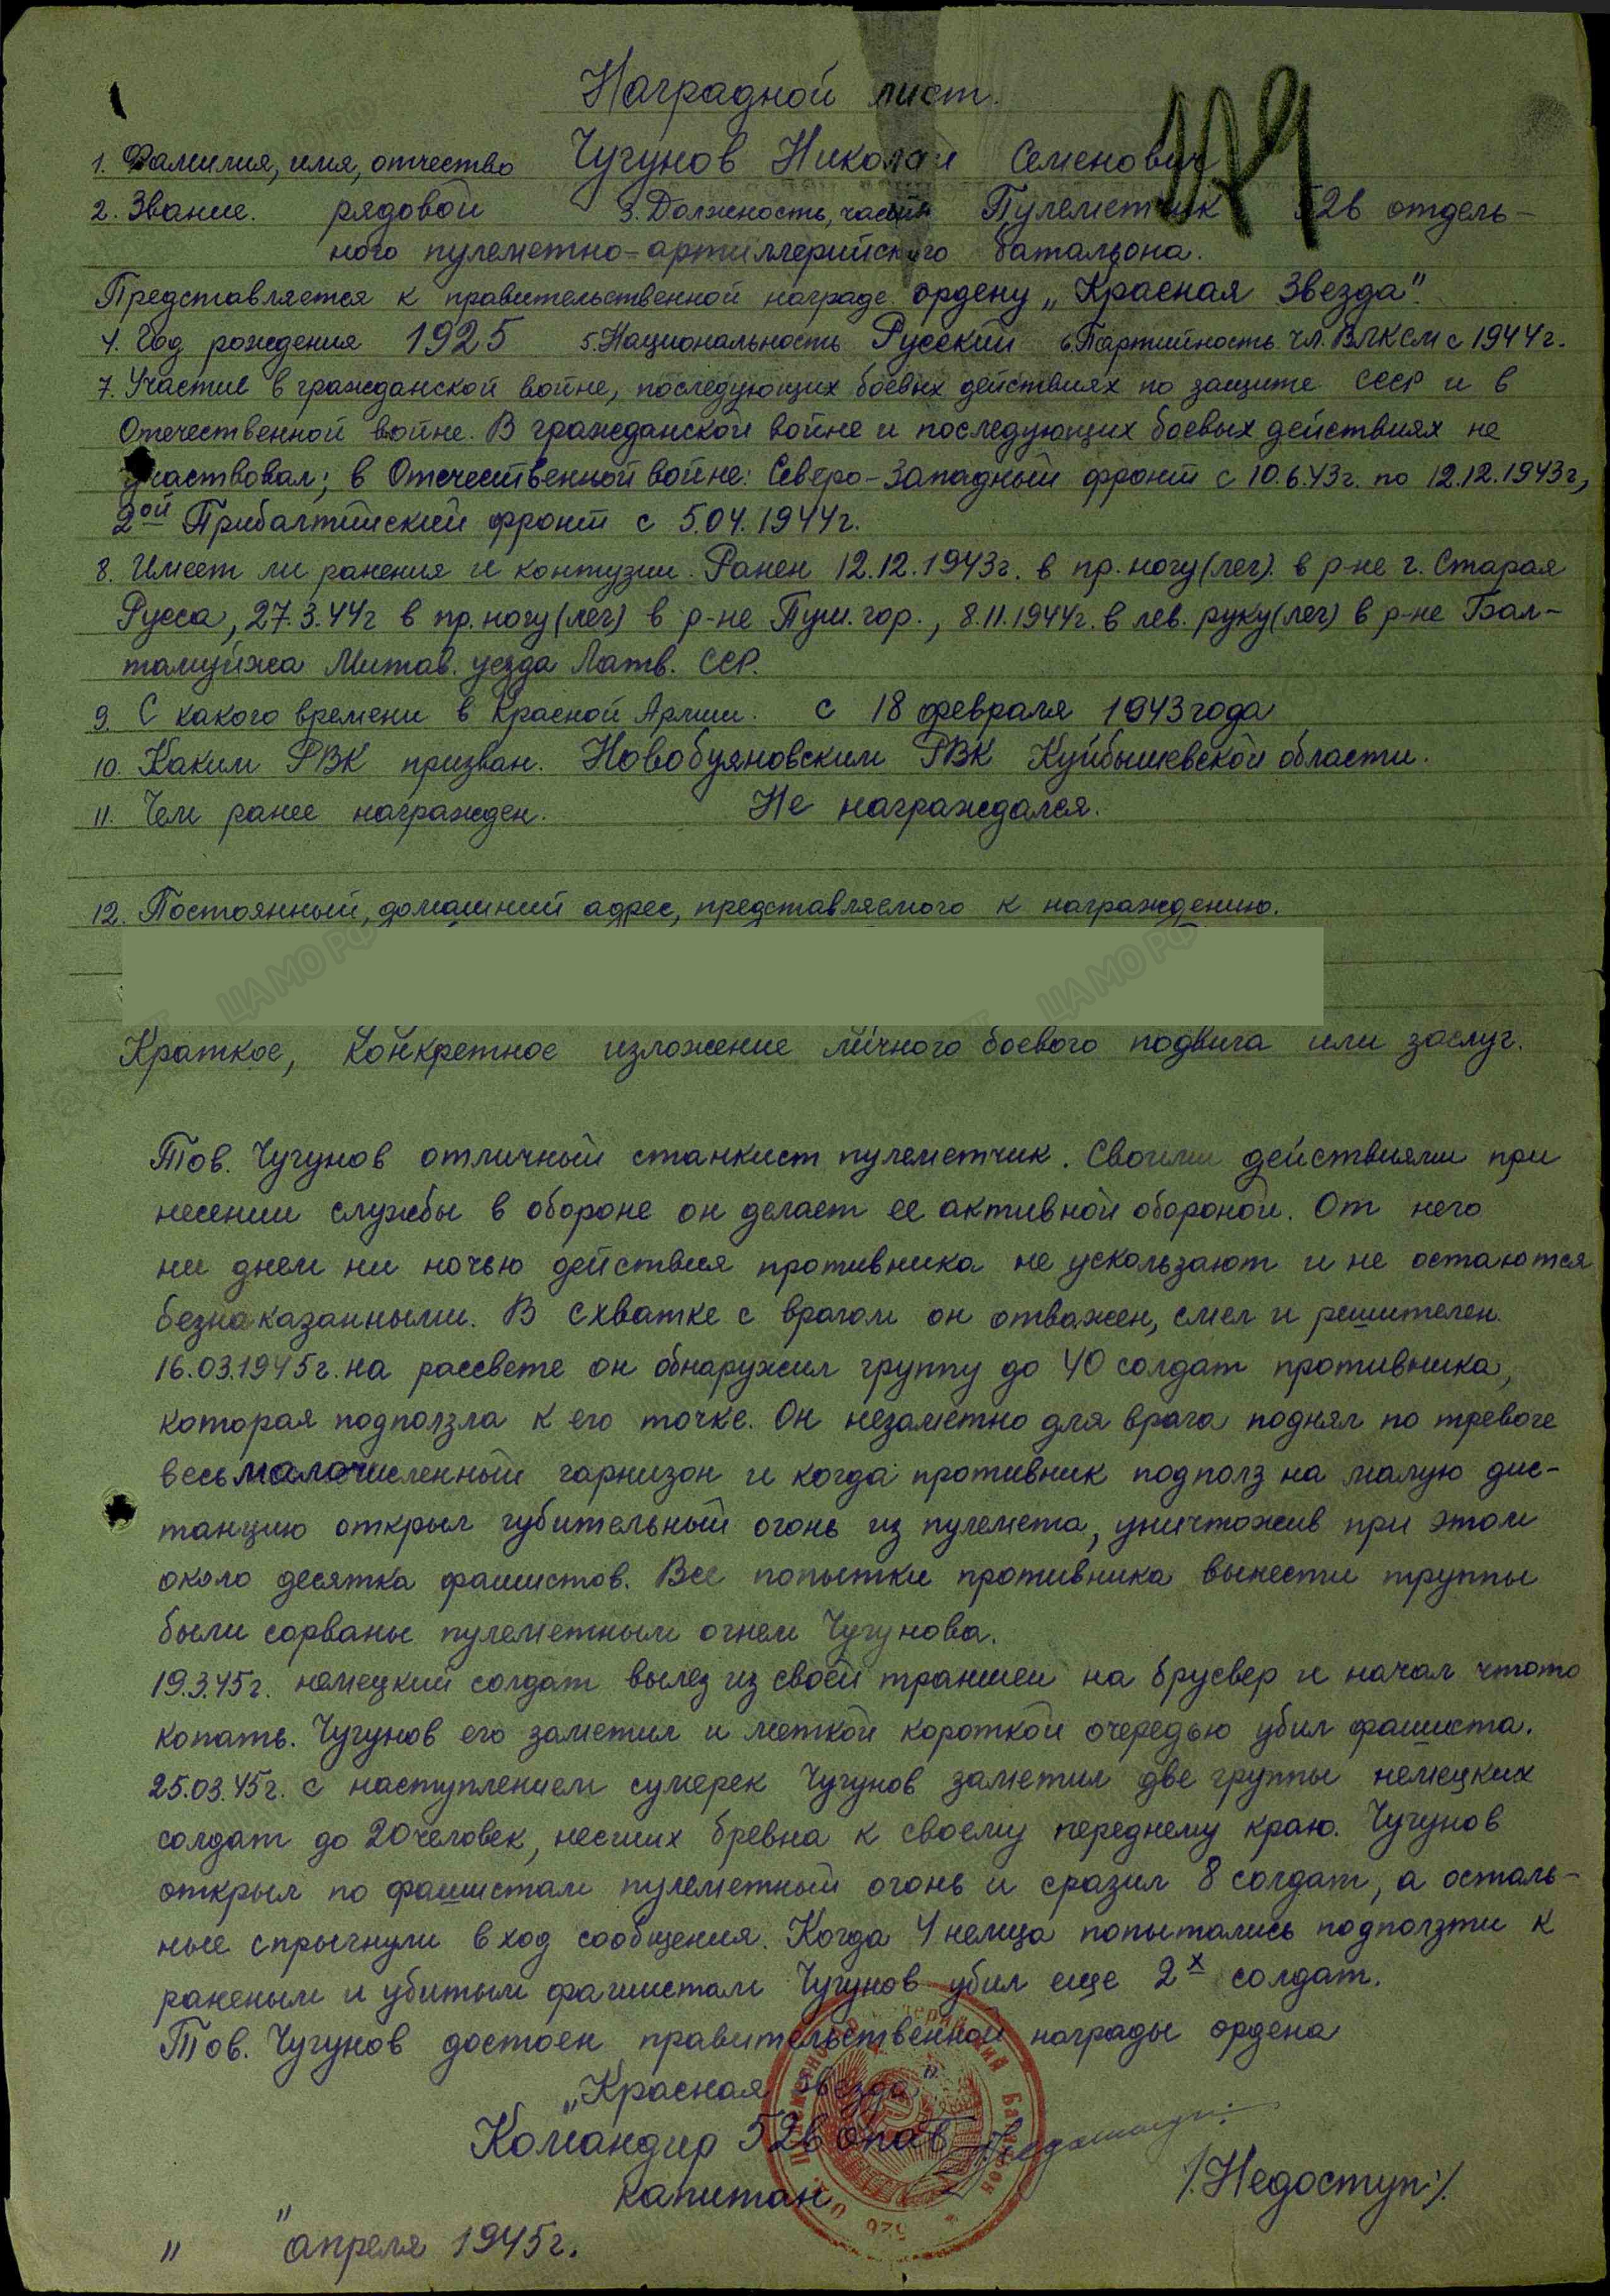 Наградной лист.
179
1. Фамилия, имя, отчество Чугунов Николай Семенович
2. Звание. рядовой 3. Должность, часть Пулеметчик 526 отдель-
ного пулеметно-артиллерийского батальона.
Представляется к правительственной награде ордену „Красная Звезда".
4. Год рождения 1925 5. Национальность Русский 6. Партийность чл. ВЛКСМ с 1944г.
7. Участие в гражданской войне, последующих боевых действиях по защите СССР и в
Отечественной войне. В гражданской войне и последующих боевых действиях не
участвовал; в Отечественной войне: Северо-Западный фронт с 10.6.43г. по 12.12.1943г.,
2ой Прибалтийский фронт с 5.04.1944г.
8. Имеет ли ранения и контузии. Ранен 12.12.1943г. в пр. ногу (лег). в р-не г. Старая
Русса, 27.3.44г в пр. ногу (лег) в р-не Пуш. гор., 8.11.1944г. в лев. руку (лег) в р-не Бал-
тамуйжа Митав. уезда Латв. ССР.
9. С какого времени в Красной Армии. с 18 февраля 1943 года
10. Каким РВК призван. Новобуяновским РВК Куйбышевской области.
11. Чем ранее награжден. Не награждался.
12. Постоянный, домашний адрес, представляемого к награждению.
ЦАМО РФ ЦАМО РФ
Краткое, конкретное изложение личного боевого подвига или заслуг.
Тов. Чугунов отличный станкист пулеметчик. Своими действиями при
несении службы в обороне он делает ее активной обороной. От него
ни днем ни ночью действия противника не ускользают и не остаются
безнаказанными. В схватке с врагом он отважен, смел и решителен.
16.03.1945г. на рассвете он обнаружил группу до 40 солдат противника,
которая подползла к его точке. Он незаметно для врага поднял по тревоге
весь малочисленный гарнизон и когда противник подполз на малую дис-
танцию открыл губительный огонь из пулемета, уничтожив при этом
около десятка фашистов. Все попытки противника вынести труппы
были сорваны пулеметным огнем Чугунова.
19.3.45г. немецкий солдат вылез из своей траншеи на бруствер и начал чтото
копать. Чугунов его заметил и меткой короткой очередью убил фашиста.
25.03.45г. с наступлением сумерек Чугунов заметил две группы немецких
солдат до 20 человек, несших бревна к своему переднему краю. Чугунов
открыл по фашистам пулеметный огонь и сразил 8 солдат, а осталь-
ные спрыгнули в ход сообщения. Когда 4 немца попытались подползти к
раненым и убитым фашистам Чугунов убил еще 2х солдат.
Тов. Чугунов достоен правительственной награды ордена
„Красная звезда"
Командир 526 опаб
капитан /.Недоступ./.
„ " апреля 1945г.